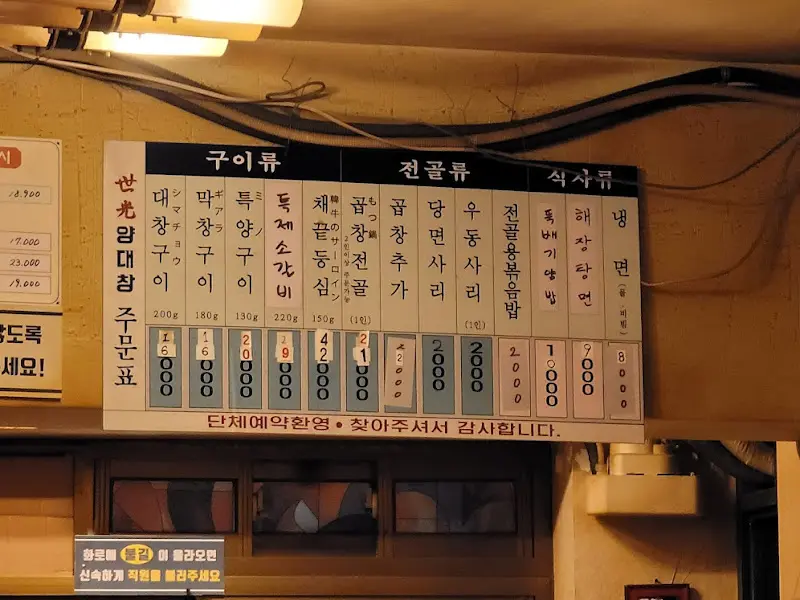 시
18.900
17.000
23.000
19.000
않도록
세요!
世光양대창 주문표
구이류
전골류
식사류
대창구이 シマチョウ 200g 16000
막창구이 ギアラ 180g 16000
특양구이 ミノ 130g 20000
특제소갈비 220g 29000
채끝등심 韓牛のサーロイン 150g 42000
곱창전골 もつ鍋 2인이상 주문가능 (1인) 21000
곱창추가
당면사리 2000
우동사리 (1인) 2000
전골용볶음밥 2000
뚝배기양밥 10000
해장탕면 9000
냉면 (물·비빔) 8000
단체예약환영 • 찾아주셔서 감사합니다.
화로에 불길이 올라오면
신속하게 직원을 불러주세요